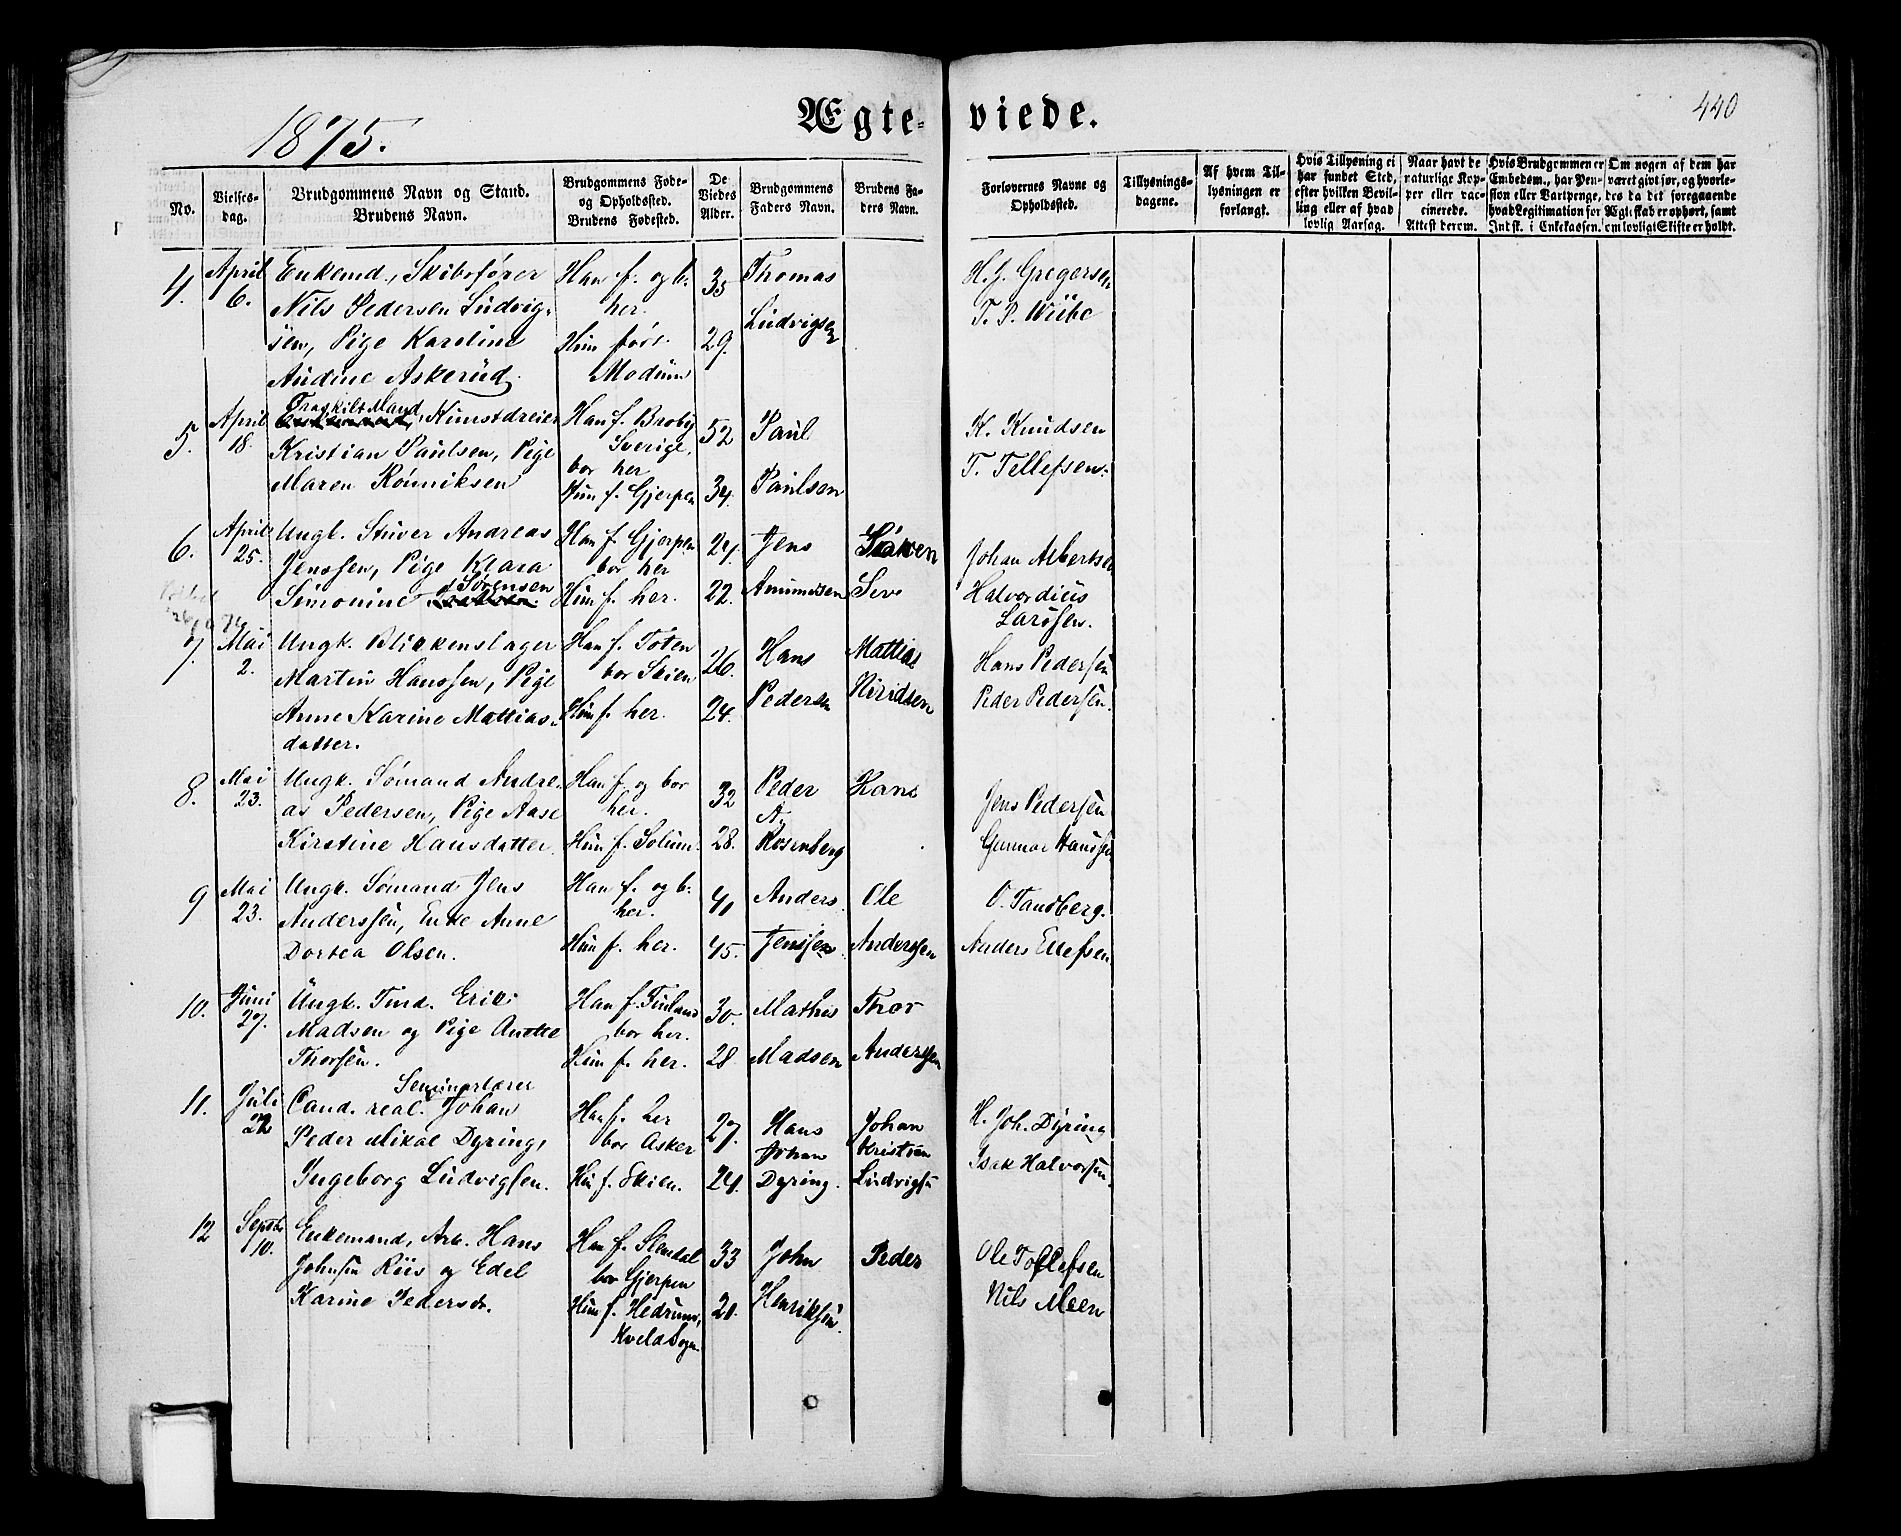 1875.
Ægteviede.
440
No.
Vielses-
dag.
Brudgommens Navn og Stand.
Brudens Navn.
Brudgommens Føde-
og Opholdssted.
Brudens Fødested.
De
Viedes
Alder.
Brudgommens
Faders Navn.
Brudens Fa-
ders Navn.
Forlovernes Navne og
Opholdssted.
Tillysnings-
dagene.
Af hvem Til-
lysningen er
forlangt.
Hvis Tillysning ei
har fundet Sted,
efter hvilken Bevil-
ling eller af hvad
lovlig Aarsag.
Naar havt de
naturlige Kop-
per eller vac-
cinerede.
Attest derom.
Hvis Brudgommen er
Embedsm., har Pen-
sion eller Vartpenge,
hvad Legitimation for
Indsk. i Enkekassen.
Om nogen af dem har
været givt før, og hvorle-
des da det foregaaende
Ægteskab er ophørt, samt
om lovligt Skifte er holdt.
4.
April
6.
Enkemd., Skibsfører
Nils Pedersen Ludvig-
sen, Pige Karoline
Andine Askerud
Han f. og b.
her.
Hun före
Modum
35
29.
Thomas
Ludvigsen
H. J. Gregersen
T. P. Wiibe
5.
April
18.
Fraskilt Mand
Kunstdreier
Kristian Paulsen, Pige
Maren Rönniksen
Han f. Broby
Sverige,
bor her
Hun f. Gjerpen
52
34.
Paul
Paulsen
K. Knudsen
T. Tellefsen.
6.
April
25.
Ungk. Stuver Andreas
Jenssen, Pige Klara
Simonine Sørensen
Han f. Gjerpen
bor her
Hun f. her.
24.
22.
Jens
Amundsen
Søren
Johan Albertsen
Halvordius
Larssen.
7.
Mai
2.
Ungk. Blikkenslager
Martin Hanssen, Pige
Anne Karine Mattias-
datter.
Han f. Toten
bor Skien
Hun f. her.
26.
24.
Hans
Pedersen
Mattias
Hans Pedersen
Peder Pedersen.
8.
Mai
23.
Ungk. Sømand Andre-
as Pedersen, Pige Aase
Kirstine Hansdatter
Han f. og bor
her.
Hun f. Solum.
32
28.
Peder
A.
Rosenberg
Hans
Jens Pedersen
Gunnar Hanssen
9
Mai
23.
Ungk. Sømand Jens
Anderssen, Enke Anne
Dortea Olsen.
Han f. og b.
her.
Hun f. her.
41
45.
Anders
Jenssen
Ole
Anderssen
O. Tandberg.
Anders Ellefsen
10.
Juni
27.
Ungk. Tind. Erik
Madsen og Pige Anette
Thorsen.
Han f. Finland
bor her.
Hun f. her.
30.
28
Mathis
Madsen
Thor
Anderssen
11.
Juli
22
Seminarlærer
Cand. real. Johan
Peder Mikal Dyring,
Ingeborg Ludvigsen.
Han f. her
bor Asker
Hun f. Skien.
27.
24.
Hans
Johan
Dyring.
Johan
Kristian
Ludvigsen
H. Joh. Dyring
Isak Halvorsen.
12
Septbr
10.
Enkemand, Arb. Hans
Johnsen Riis og Edel
Karine Pedersdr.
Han f. Slendal
bor Gjerpen
Hun f. Hedrum,
Kvelds Sogn
33
20.
John
Henriksen.
Peder
Ole Tollefsen
Nils Meen